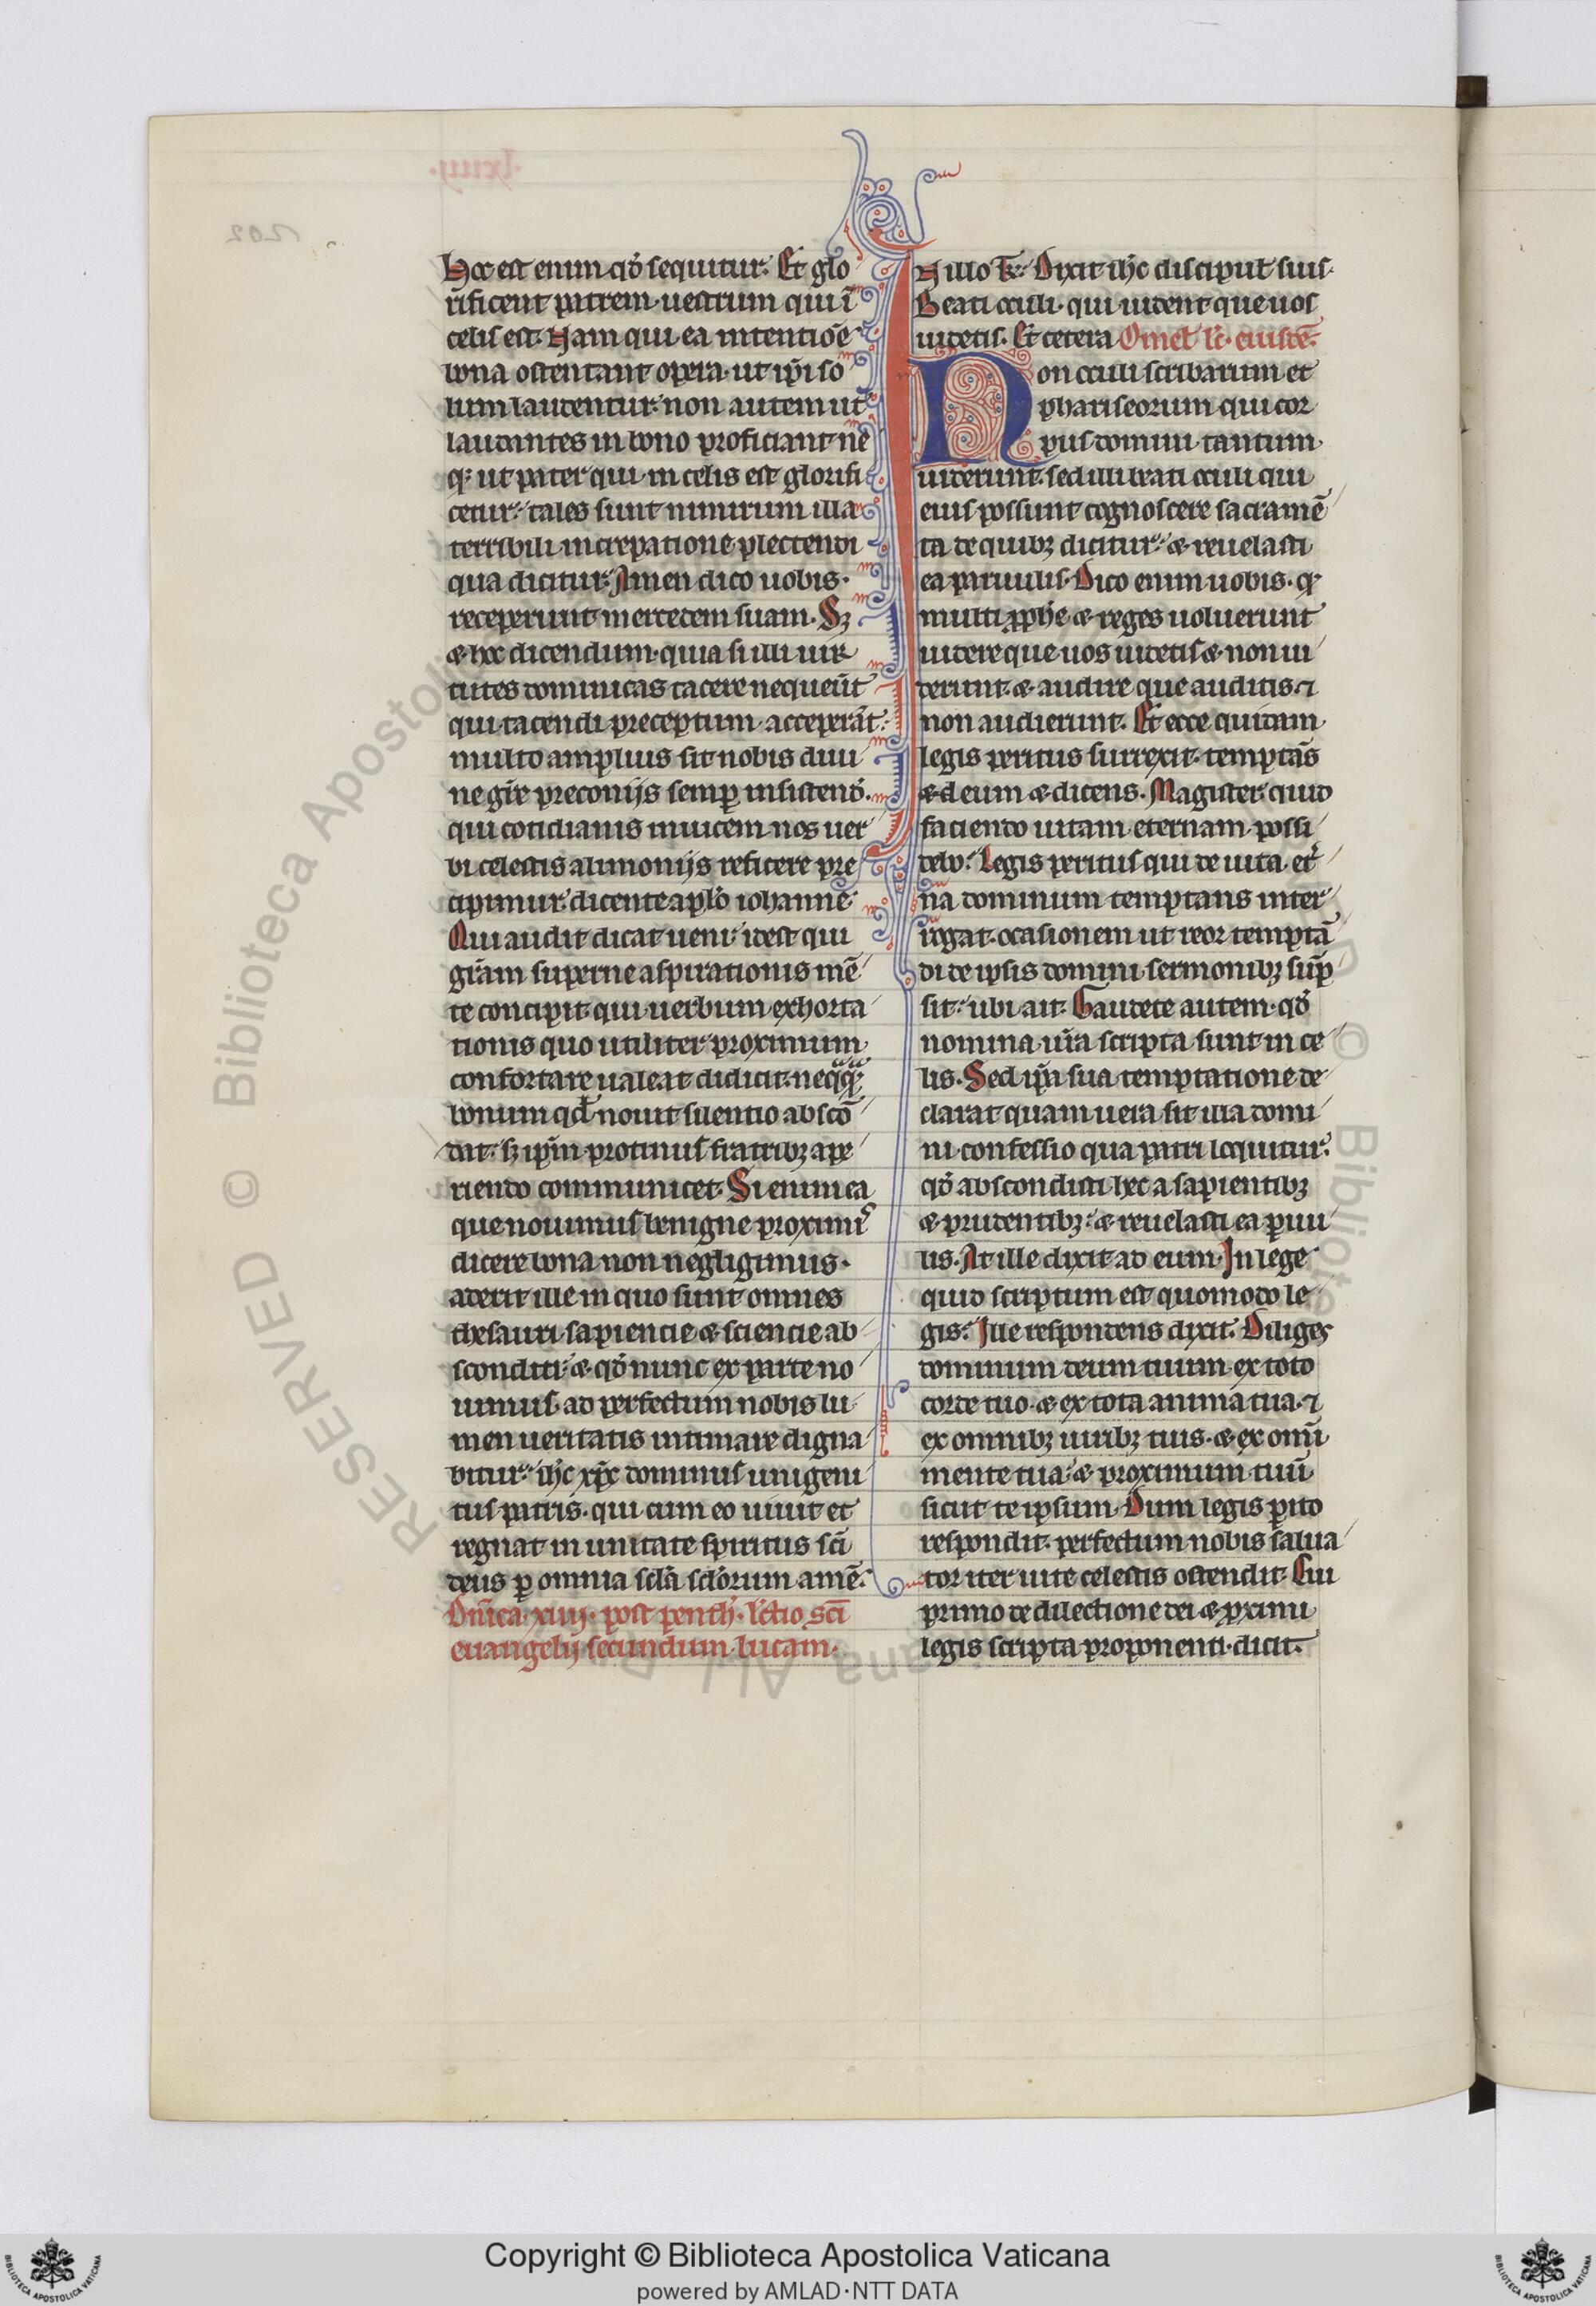 Hoc est enim qđ sequitur. Et glo
rificent patrem uestrum qui ī
celis est. Nam qui ea intentiōe
bona ostentant opera ut ip̄i so
lum laudentur. non autem ut
laudantes in bono proficiant ne
q; ut pater qui in celis est glorifi
cetur. tales sunt nimirum illa
terribili increpatione plectendi
qua dicitur. Amen dico uobis.
receperunt mercedem suam. Sꝫ
& hoc dicendum. quia si illi uir
tutes dominicas tacere nequeūt
qui tacendi preceptum acceperāt.
multo amplius sit nobis diui
ne gr̄e preconijs semꝑ insistend̄.
qui cotidianis inuicem nos uer
bi celestis alimonijs reficere pre
cipimur dicente apl̄o iohanne.
Qui audit dicat ueni. idest qui
gr̄am superne aspirationis mē
te concipit. qui uerbum exhorta
tionis quo utiliter proximum
confortare ualeat didicit. neq̄q̄;
bonum qđ nouit silentio abscō
dat. sꝫ ip̄m protinus fratribꝫ ape
riendo communicet. Si enim ea
que nouimus benigne proximis
dicere bona non negligimus.
aderit ille in quo sunt omnes
thesauri sapiencie & sciencie ab
sconditi. & qđ nunc ex parte no
uimus. ad perfectum nobis lu
men ueritatis intimare digna
bitur. ihc̄ xp̄c dominus unigeni
tus patris. qui cum eo uiuit et
regnat in unitate spiritus sc̄i
deus ꝑ omnia scl̄a scl̄orum amē.
Dn̄ica xiiij. post penth. lc̄tio sc̄i
euangelij secundum lucam.
In illo t̄r. Dixit ihc̄ discipul̄ suis.
Beati oculi. qui uident que uos
uidetis. Et cetera Omel̄ lc̄. eiusdē.
Non oculi scribarum et
phariseorum qui cor
pus domini tantum
uiderunt. sed illi beati oculi qui
eius possunt cognoscere sacramē
ta de quibꝫ dicitur. & reuelasti
ea paruulis. Dico enim uobis. q;
multi ꝓph̄e & reges uoluerunt
uidere que uos uidetis & non ui
derunt. & audire que auditis. ⁊
non audierunt. Et ecce quidam
legis peritus surrexit. temptās
& deum & dicens. Magister quid
faciendo uitam eternam possi
debo. Legis peritus qui de uita et̄
na dominum temptans inter
rogat. ocasionem ut reor temptā
di de ipsis domini sermonibꝫ sūp
sit. ubi ait. Gaudete autem. qđ
nomina ur̄a scripta sunt in ce
lis. Sed ip̄a sua temptatione de
clarat quam uera sit illa domi
ni confessio qua patri loquitur.
qđ abscondisti hec a sapientibꝫ
& prudentibꝫ. & reuelasti ea ꝑuu
lis. At ille dixit ad eum. In lege
quid scriptum est quomodo le
gis. Ille respondens dixit. Diliges
dominum deum tuum ex toto
corde tuo. & ex tota anima tua. ⁊
ex omnibꝫ uiribꝫ tuis. & ex omi
mente tua. & proximum tuū
sicut te ipsum. Dum legis ꝑito
respondit. perfectum nobis salua
tor iter uite celestis ostendit. Cui
primo de dilectione dei & ꝓximi
legis scripta proponenti. dicit.
Copyright © Biblioteca Apostolica Vaticana
powered by AMLAD·NTT DATA